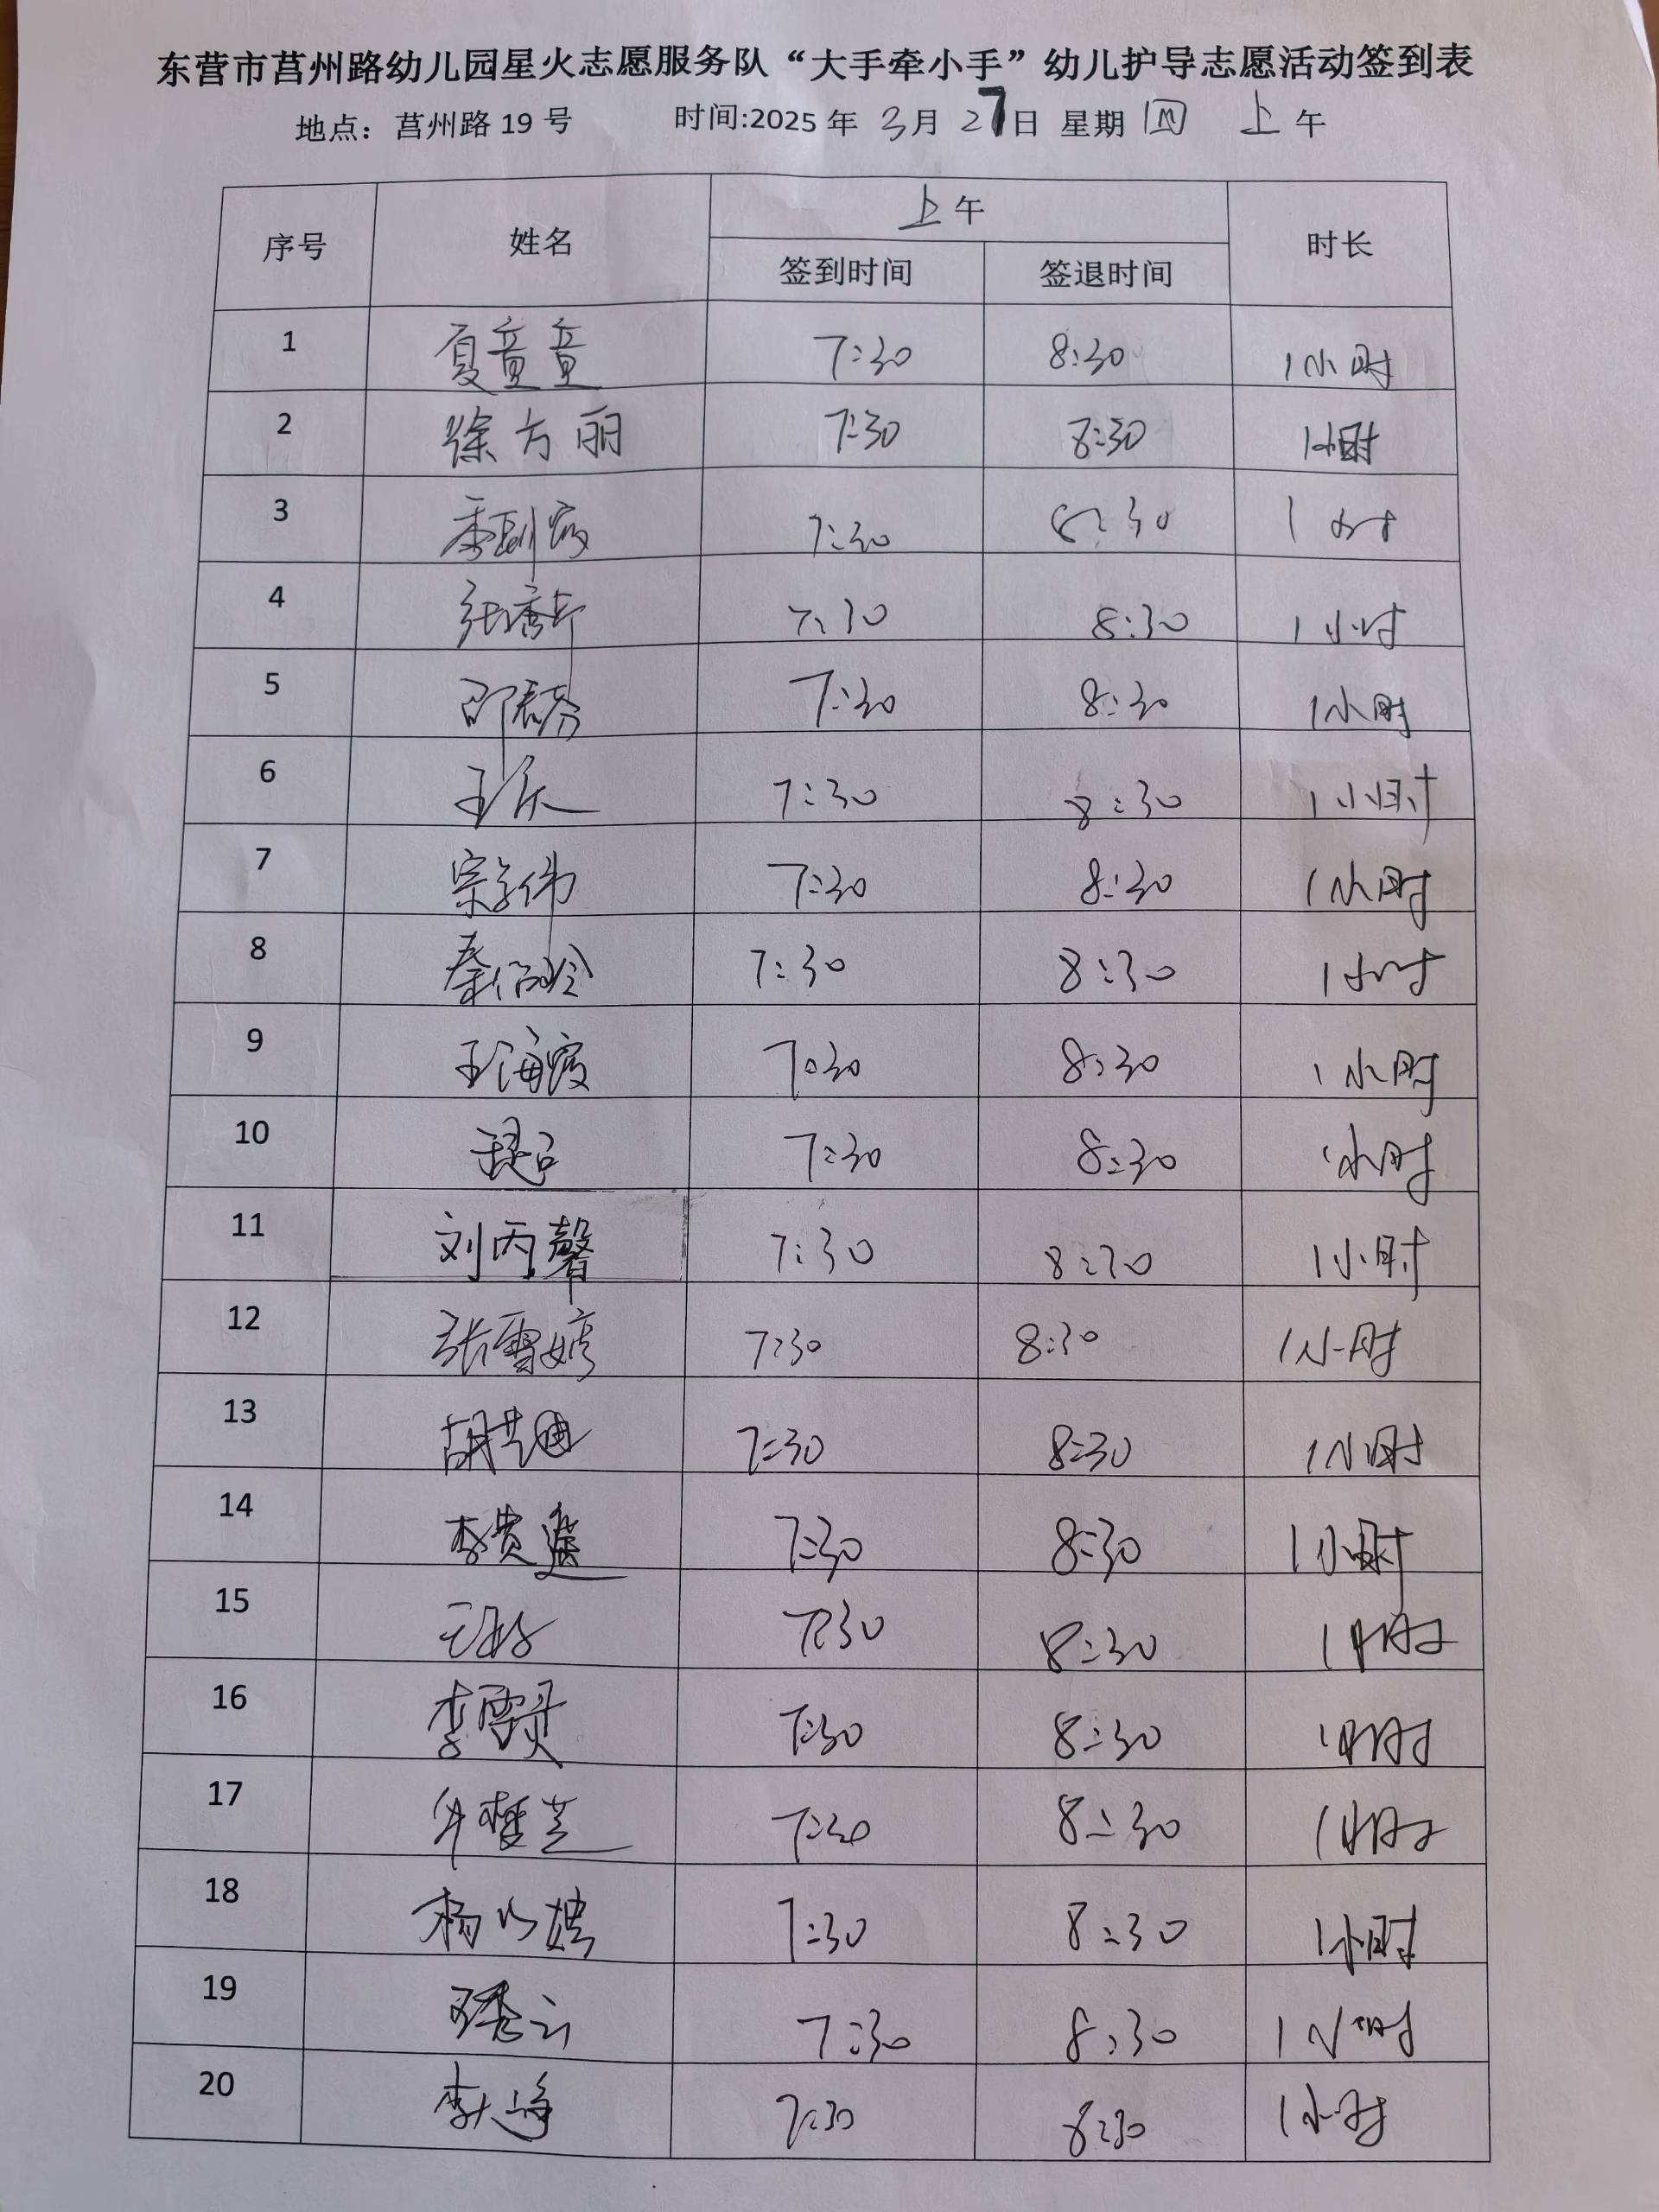 东营市莒州路幼儿园星火志愿服务队“大手牵小手”幼儿护导志愿活动签到表
地点：莒州路 19 号 时间:2025 年 3月 27日 星期 四 上 午
序号 姓名 上 午 时长
签到时间 签退时间
1 夏童童 7:30 8:30 1小时
2 徐方丽 7:30 8:30 1小时
3 7:30 8:30 1小时
4 7:30 8:30 1小时
5 7:30 8:30 1小时
6 7:30 8:30 1小时
7 7:30 8:30 1小时
8 7:30 8:30 1小时
9 王海霞 7:30 8:30 1小时
10 7:30 8:30 1小时
11 刘丙馨 7:30 8:30 1小时
12 张雪婷 7:30 8:30 1小时
13 7:30 8:30 1小时
14 7:30 8:30 1小时
15 7:30 8:30 1小时
16 7:30 8:30 1小时
17 7:30 8:30 1小时
18 7:30 8:30 1小时
19 7:30 8:30 1小时
20 7:30 8:30 1小时